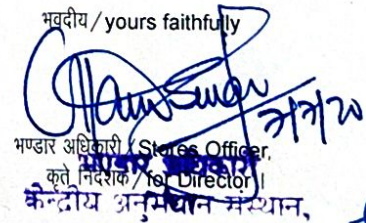 भवदीय / yours faithfully
7/7/20
भण्डार अधिकारी / Stores Officer,
भण्डार अधिकारी
कृते निदेशक / for Director
केन्द्रीय अनुसंधान संस्थान,